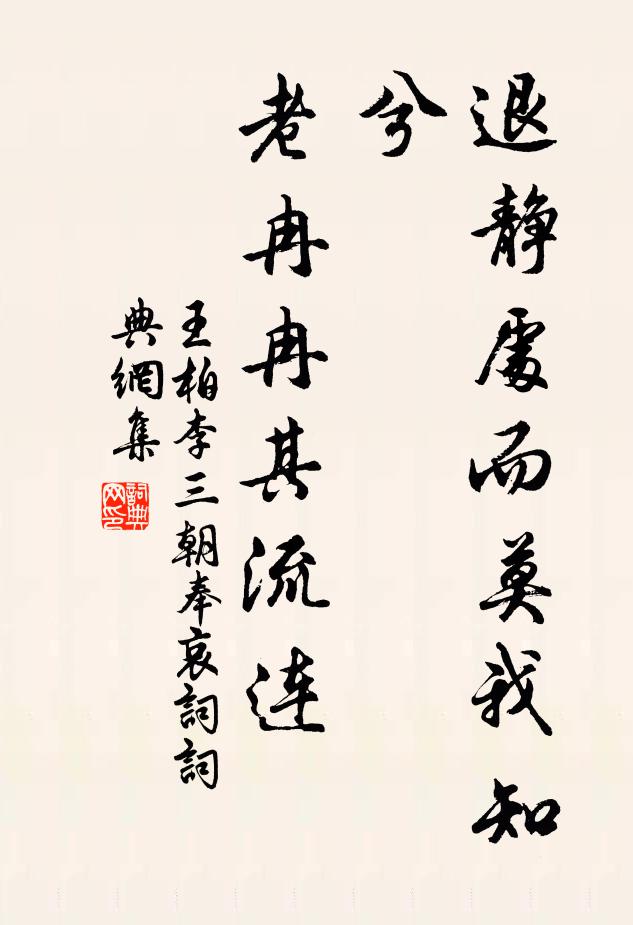 退靜處而莫我知
兮
老冉冉其流連
王柏李三朝奉哀詞詞
典網集
詞典
网印